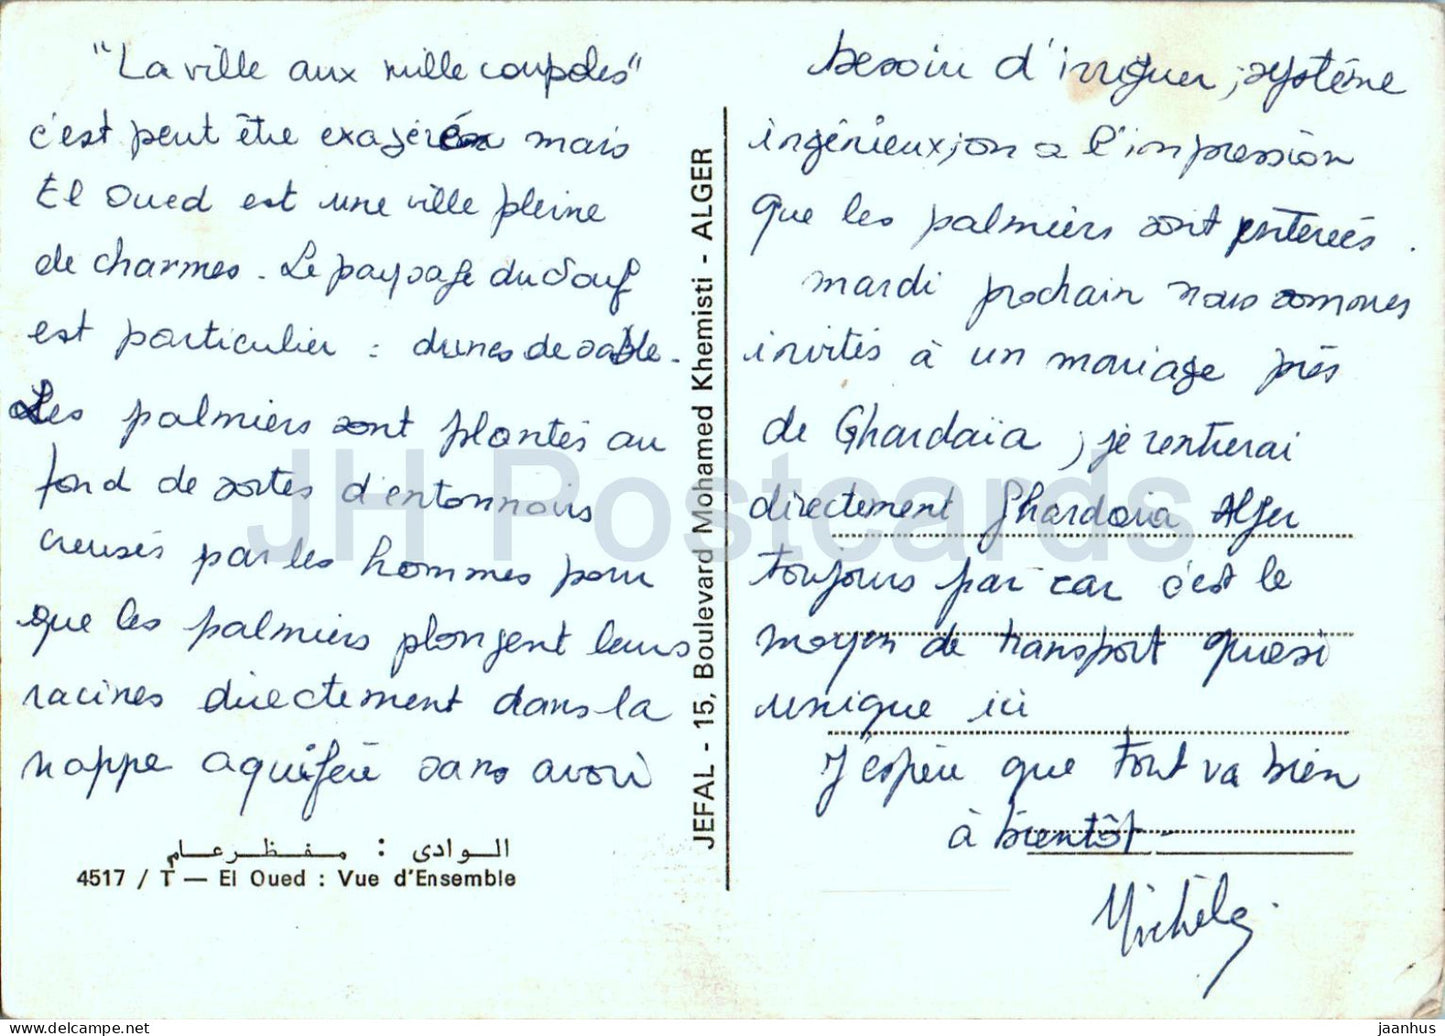 "La ville aux mille coupoles"
c'est peut être exagéré mais
El Oued est une ville pleine
de charmes. Le paysage du Souf
est particulier : dunes de sable.
Les palmiers sont plantés au
fond de sortes d'entonnoirs
creusés par les hommes pour
que les palmiers plongent leurs
racines directement dans la
nappe aquifère sans avoir
الوادي : منظر عام
4517 / T — El Oued : Vue d'Ensemble
JEFAL - 15, Boulevard Mohamed Khemisti - ALGER
besoin d'irriguer ; système
ingénieux ; on a l'impression
que les palmiers sont enterrés.
mardi prochain nous sommes
invités à un mariage près
de Ghardaïa ; je rentrerai
directement Ghardaia Alger
toujours par car c'est le
moyen de transport quasi
unique ici
J'espère que tout va bien
à bientôt -
Michèle
JH Postcards
delcampe.net
jaanhus